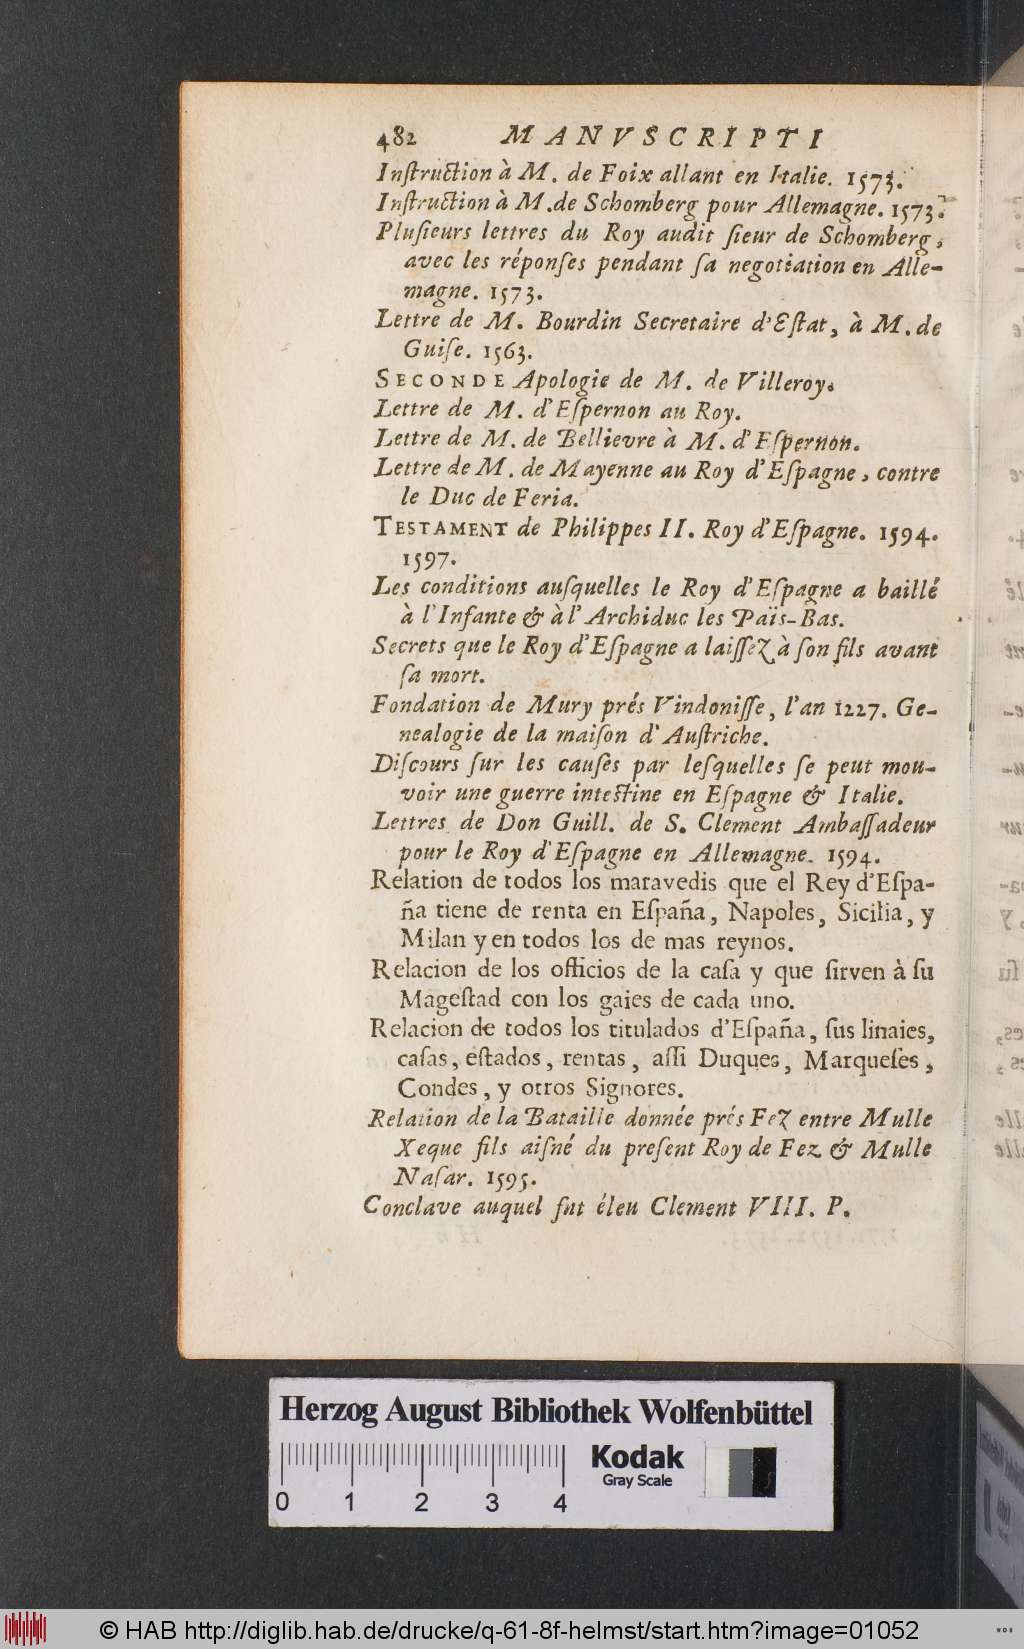 482 MANVSCRIPTI
Inſtruction à M. de Foix allant en Italie. 1573.
Inſtruction à M. de Schomberg pour Allemagne. 1573.
Pluſieurs lettres du Roy audit ſieur de Schomberg,
avec les réponſes pendant ſa negotiation en Alle-
magne. 1573.
Lettre de M. Bourdin Secretaire d'Eſtat, à M. de
Guiſe. 1563.
SECONDE Apologie de M. de Villeroy.
Lettre de M. d'Eſpernon au Roy.
Lettre de M. de Bellievre à M. d'Eſpernon.
Lettre de M. de Mayenne au Roy d'Eſpagne, contre
le Duc de Feria.
TESTAMENT de Philippes II. Roy d'Eſpagne. 1594.
1597.
Les conditions auſquelles le Roy d'Eſpagne a baillé
à l'Infante & à l'Archiduc les Païs-Bas.
Secrets que le Roy d'Eſpagne a laiſſez à ſon fils avant
ſa mort.
Fondation de Mury prés Vindoniſſe, l'an 1227. Ge-
nealogie de la maiſon d'Auſtriche.
Diſcours ſur les cauſes par leſquelles ſe peut mou-
voir une guerre inteſtine en Eſpagne & Italie.
Lettres de Don Guill. de S. Clement Ambaſſadeur
pour le Roy d'Eſpagne en Allemagne. 1594.
Relation de todos los maravedis que el Rey d'Eſpa-
ña tiene de renta en Eſpaña, Napoles, Sicilia, y
Milan y en todos los de mas reynos.
Relacion de los officios de la caſa y que ſirven à ſu
Mageſtad con los gaies de cada uno.
Relacion de todos los titulados d'Eſpaña, ſus linaies,
caſas, eſtados, rentas, aſſi Duques, Marqueſes,
Condes, y otros Signores.
Relation de la Bataille donnée prés Fez entre Mulle
Xeque fils aiſné du preſent Roy de Fez & Mulle
Naſar. 1595.
Conclave auquel fut éleu Clement VIII. P.
Herzog August Bibliothek Wolfenbüttel
Kodak
Gray Scale
0 1 2 3 4
© HAB http://diglib.hab.de/drucke/q-61-8f-helmst/start.htm?image=01052